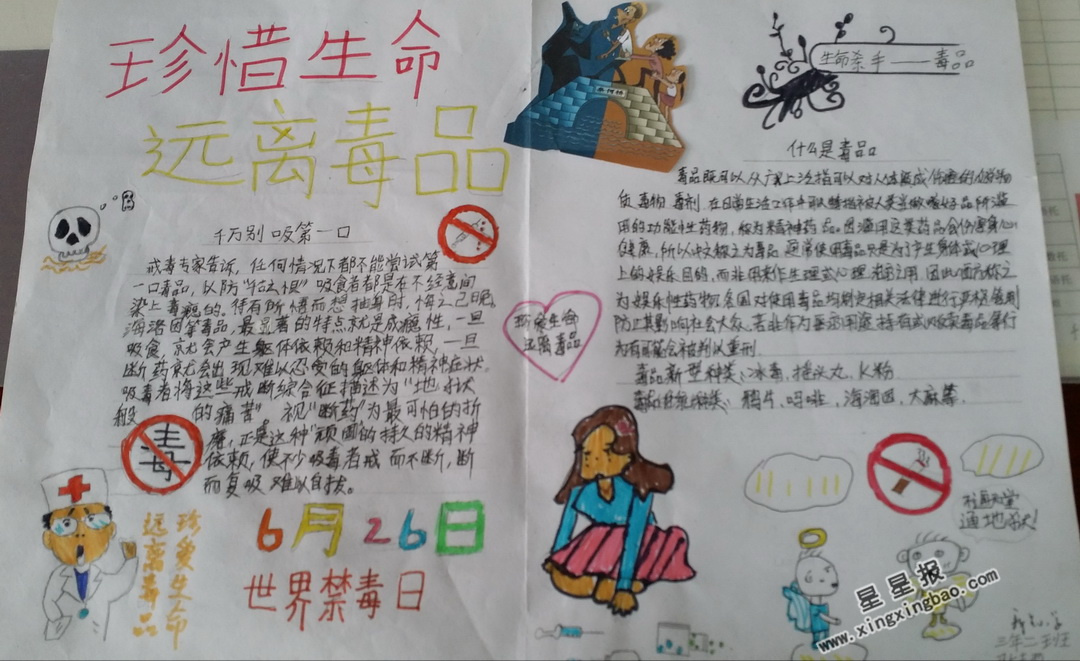 珍惜生命
远离毒品
千万别吸第一口
戒毒专家告诉，任何情况下都不能尝试第
一口毒品，以防“上当”吸食者都是在不经意间
染上毒瘾的。待有所悟而想抽身时，悔之已晚。
海洛因等毒品，最显著的特点就是成瘾性，一旦
吸食，就会产生躯体依赖和精神依赖，一旦
断药就会出现难以忍受的躯体和精神症状。
吸毒者将这些戒断综合征描述为“地狱
般 的痛苦”视“断药”为最可怕的折
磨，正是这种“顽固的持久的精神
依赖，使不少吸毒者戒而不断，断
而复吸 难以自拔。
毒
珍爱生命
远离毒品
6月26日
世界禁毒日
珍爱生命
远离毒品
生命杀手——毒品
什么是毒品
毒品既可以从广义上泛指可以对人体造成伤害的
质 毒物 毒剂，在日常生活工作中
用的功能性药物，称为精神药品。因滥用这类药品会伤害身心
健康，所以中文称之为毒品。通常使用毒品只是为了产生身体或心理
上的娱乐目的，而非用来作生理或心理治疗之用，因此西方称之
为娱乐性药物，各国对使用毒品均制定相关法律进行严格管制
防止其影响社会大众，若非作为医疗用途，持有或吸食毒品等行
为有可能会被判以重刑。
毒品新型种类：冰毒，摇头丸，K粉
毒品传统种类：鸦片，吗啡，海洛因，大麻等
通地狱！
星星报
www.xingxingbao.com
三年二班